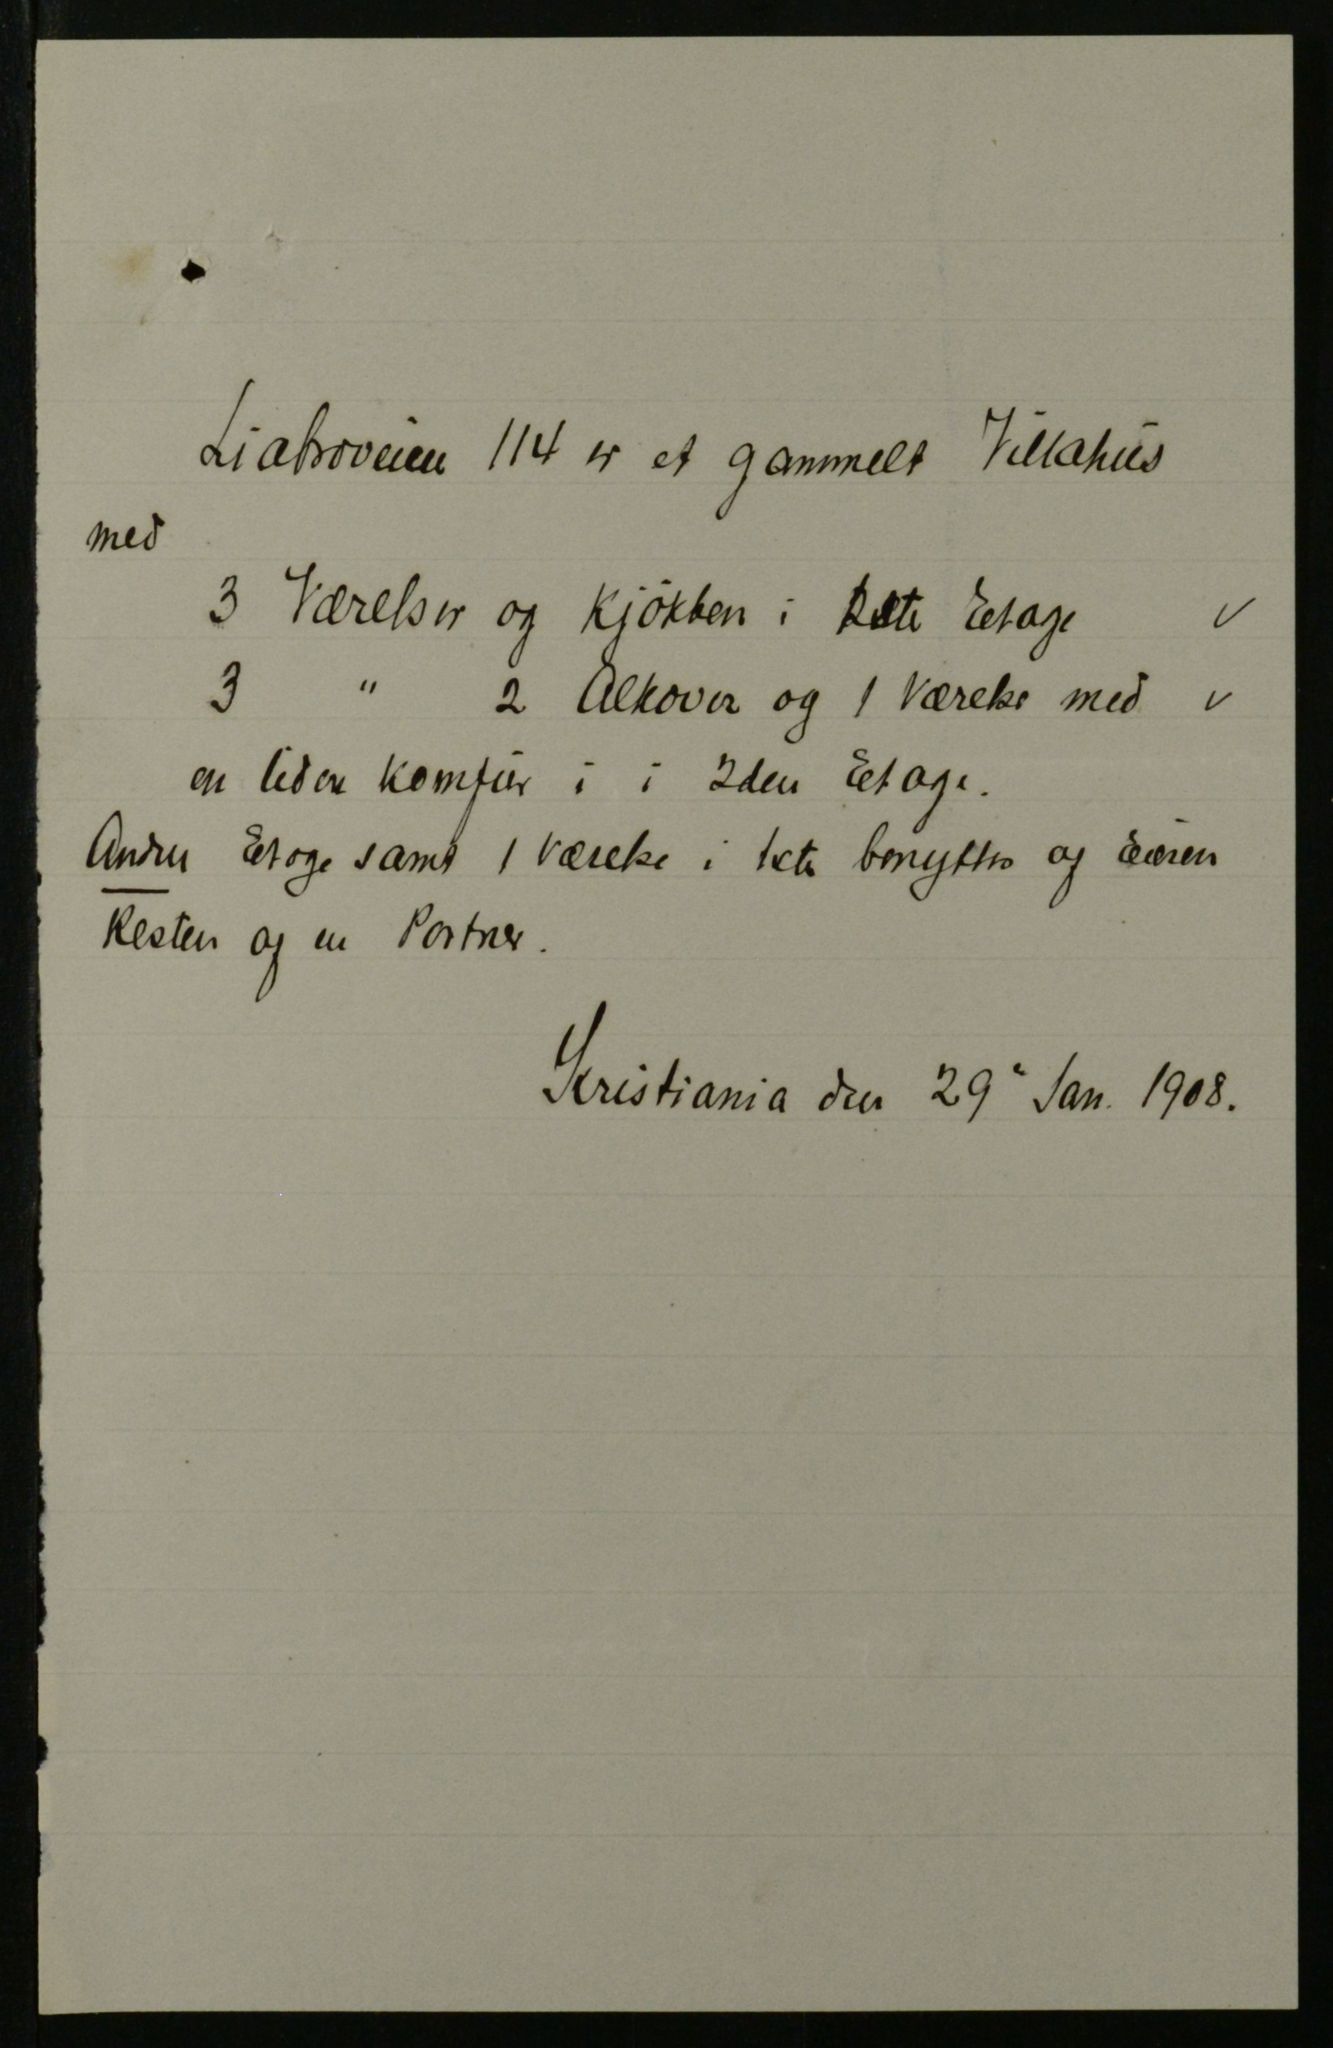 Liabroveien 114 er et gammelt Villahus
med
3 Værelser og Kjökken i 1ste Etage ✓
3 " 2 Alkover og 1 Værelse med ✓
en liden Komfur i i 2den Etage.
Anden Etage samt 1 Værelse i 1ste benyttes og Eieren
Resten og en Portner.
Kristiania den 29" Jan. 1908.